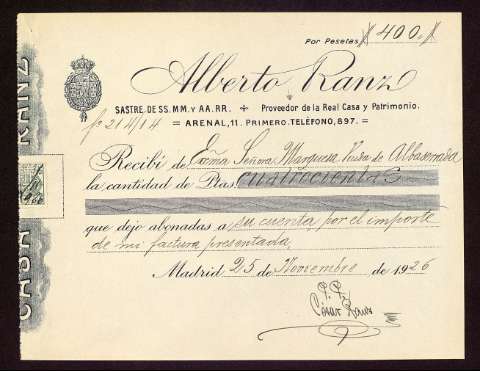 Por Pesetas 400
Alberto Ranz
SASTRE DE SS. MM. Y AA. RR. ✢ Proveedor de la Real Casa y Patrimonio.
= ARENAL, 11. PRIMERO. TELÉFONO, 897. =
Recibí de Exma Señora Marquesa Viuda de Albaserrada
la cantidad de Ptas. cuatrocientas
que dejo abonadas a su cuenta por el importe
de mi factura presentada
Madrid 25 de Noviembre de 1926
César Ranz
CASA RANZ